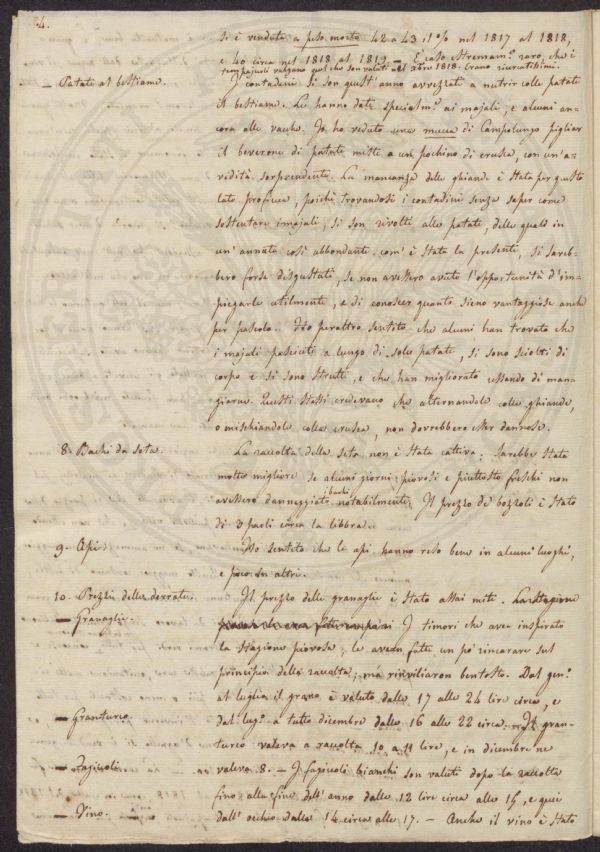 4.
si è venduta a peso morto 42 a 43 il % nel 1817 al 1818,
e 40 circa nel 1818 al 1819 — È caso estremam.e raro, che i
temporili valgano quel che son valuti nel Xbre 1818. Erano ricercatissimi.
— Patate al bestiame.
I contadini si son quest'anno avvezzati a nutrir colle patate
il bestiame. Le hanno date specialm.e ai majali, e alcuni an-
cora alle vacche. Io ho veduto una mucca di Campolungo pigliar
il beverone di patate miste a un pochino di crusca, con un'a-
vidità sorprendente. La mancanza delle ghiande è stata per questo
lato proficua, poichè trovandosi i contadini senza saper come
sostentare i majali, si son rivolti alle patate, delle quali in
un'annata così abbondante com'è stata la presente, si sareb-
bero forse disgustati, se non avessero avuto l'opportunità d'im-
piegarle utilmente, e di conoscer quanto sieno vantaggiose anche
per pascolo. Ho peraltro sentito che alcuni han trovato che
i majali pasciuti a lungo di sole patate, si sono sciolti di
corpo e si sono strutti, e che han migliorato cessando di man-
giarne. Questi stessi credevano che alternandole colle ghiande,
o mischiandole colla crusca, non dovrebbero esser dannose.
8. Bachi da seta.
La raccolta della seta non è stata cattiva; sarebbe stata
molto migliore se alcuni giorni piovosi e piuttosto freschi non
avessero danneggiato i bachi notabilmente. Il prezzo de' bozzoli è stato
di 3 paoli circa la libbra.
9. Api
Ho sentito che le api hanno reso bene in alcuni luoghi,
e poco in altri.
10. Prezzi delle derrate.
Il prezzo delle granaglie è stato assai mite. La stagione
— Granaglie.
I timori che avea inspirato
la stagione piovosa, le avean fatte un po' rincarare sul
principio della raccolta, ma rinviliaron bentosto. Dal gen.o
al luglio il grano è valuto dalle 17 alle 24 lire circa, e
dal lug.o a tutto dicembre dalle 16 alle 22 circa. — Il gran-
— Granturco.
turco valeva a raccolta 10 a 11 lire, e in dicembre ne
— Fagiuoli
valeva 8. — I fagiuoli bianchi son valuti dopo la raccolta
fino alla fine dell'anno dalle 12 lire circa alle 15, e quei
— Vino.
dall'occhio dalle 14 circa alle 17. — Anche il vino è stato